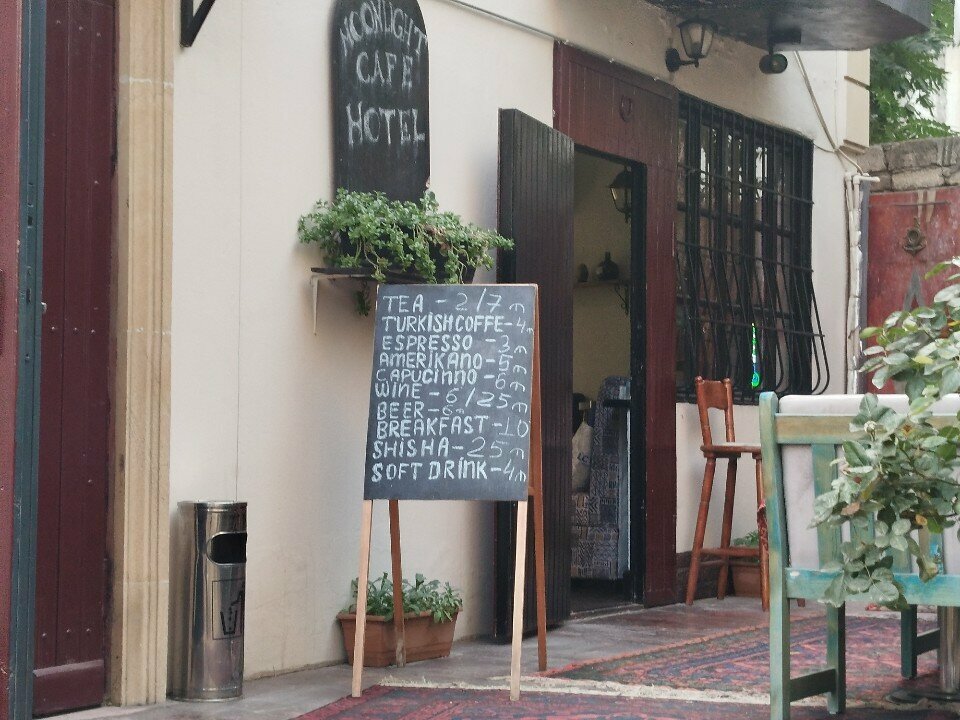 MOONLIGHT
CAFE
HOTEL
TEA - 2/7 ₼
TURKİSH COFFE - 4 ₼
ESPRESSO - 3 ₼
AMERİKANO - 5 ₼
CAPUCİNNO - 6 ₼
WİNE - 6/25 ₼
BEER - 6 ₼
BREAKFAST - 10
SHİSHA - 25 ₼
SOFT DRİNK - 4 ₼